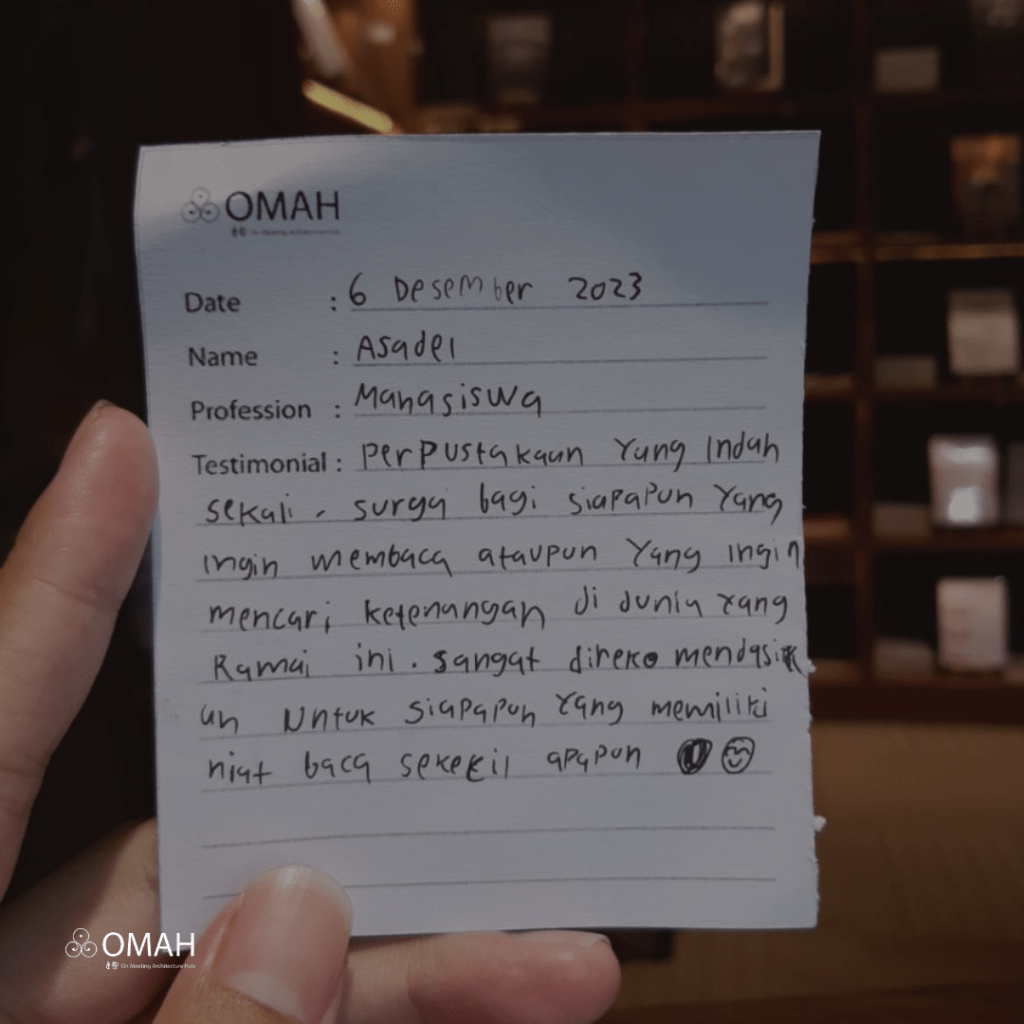 OMAH
On Meeting Architecture Hub
Date : 6 Desember 2023
Name : Asadel
Profession : Mahasiswa
Testimonial : Perpustakaan Yang Indah
sekali. surga bagi siapapun Yang
ingin membaca ataupun Yang ingin
mencari ketenangan di dunia Yang
Ramai ini. sangat direko mendasik
an untuk siapapun Yang memiliki
niat baca sekecil apapun
OMAH
On Meeting Architecture Hub